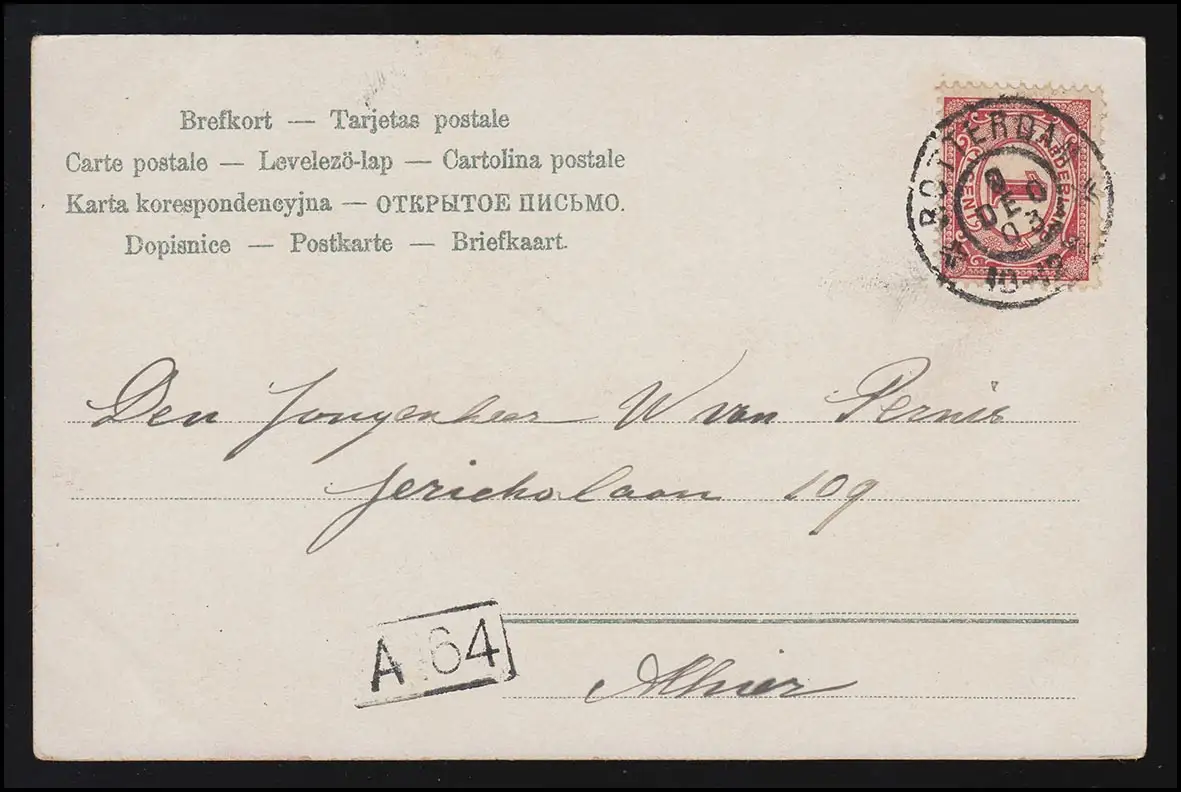 Brefkort — Tarjetas postale
Carte postale — Levelező-lap — Cartolina postale
Karta korespondencyjna — ОТКРЫТОЕ ПИСЬМО.
Dopisnice — Postkarte — Briefkaart.
ROTTERDAM
DEC
03
10-12
1
Den Jongenheer W van Pernis
Jericholaan 109
A 64
Alhier